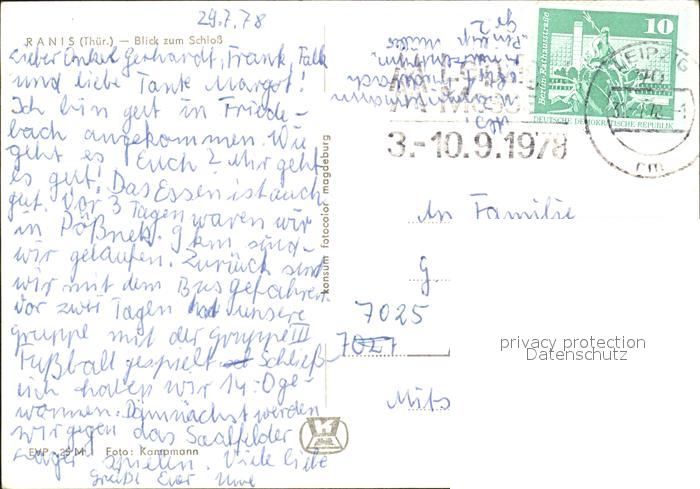 24.7.78
RANIS (Thür.) — Blick zum Schloß
Lieber Onkel Gerhardt, Frank, Falk
und liebe Tante Margot!
Ich bin gut in Friede-
bach angekommen. Wie
geht es Euch? Mir geht
es gut! Das Essen ist auch
gut. Vor 3 Tagen waren wir
in Pößneck. 9 km sind
wir gelaufen. Zurück sind
wir mit dem Bus gefahren.
Vor zwei Tagen hat unsere
Gruppe mit der Gruppe III
Fußball gespielt. Schließ-
lich haben wir 14:0 ge-
wonnen. Demnächst werden
wir gegen das Saalfelder
Lager spielen. Viele liebe
Grüße Euer Uwe
EVP -,25 M Foto: Kampmann
konsum fotocolor magdeburg
Gr. 2
10
Berlin, Rathausstraße
DEUTSCHE DEMOKRATISCHE REPUBLIK
LEIPZIG
3.-10.9.1978
An Familie
G.
7025
7027
privacy protection
Datenschutz